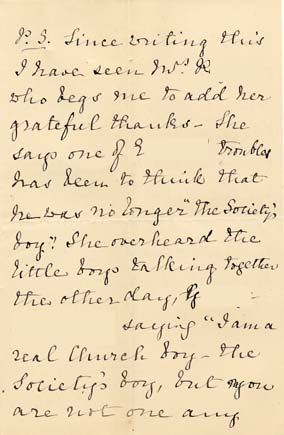 P.S. Since writing this
I have seen Mrs. R
who begs me to add her
grateful thanks - She
says one of E troubles
has been to think that
he was no longer "the Society's
boy". She overheard the
little boys talking together
the other day,
saying "I am a
real Church boy - the
Society's boy, but you
are not one any